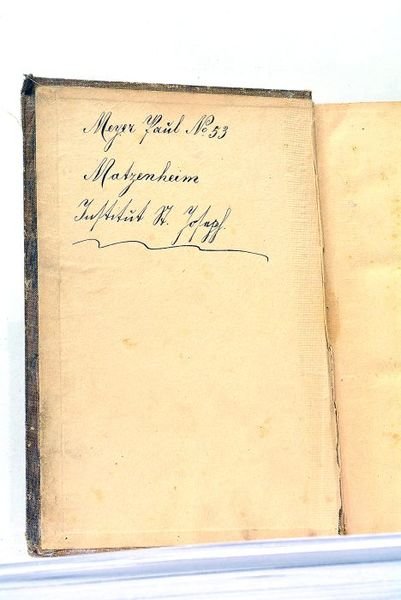 Meyer Paul No 53
Matzenheim
Institut St. Joseph.